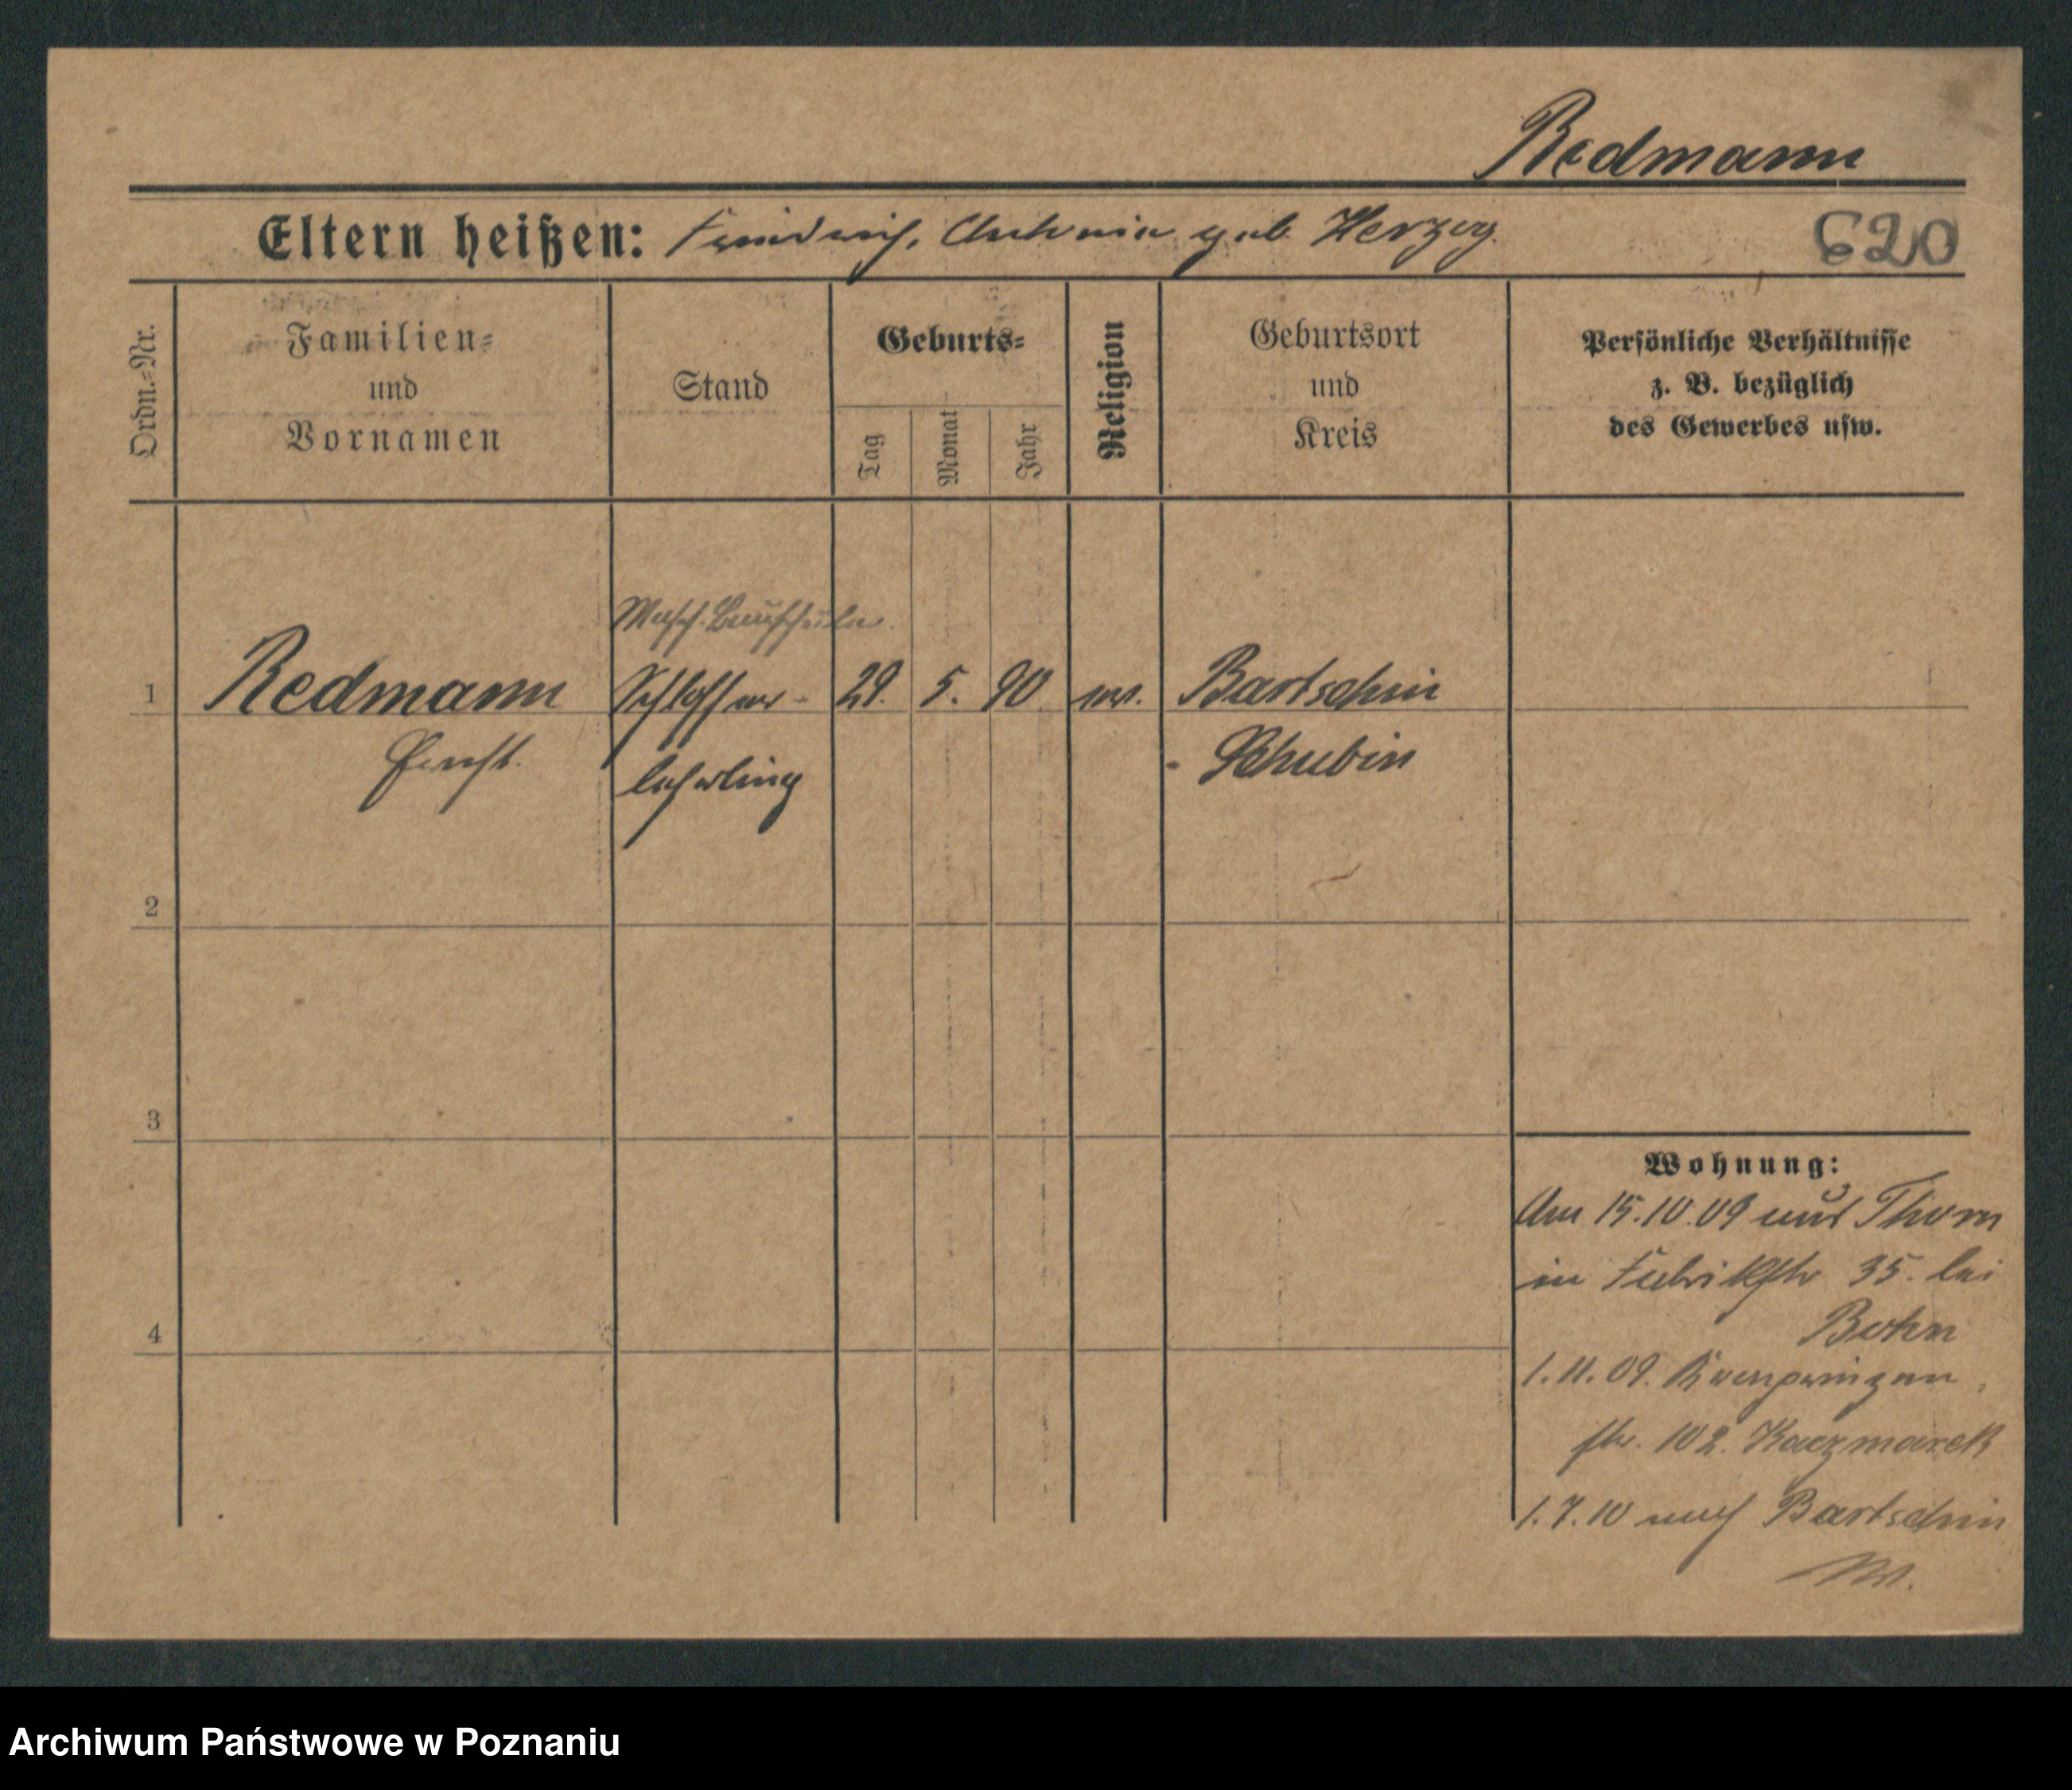 Redmann
Eltern heißen: Friedrich, Antonie geb. Herzog
620
Ordn.=Nr.
Familien=
und
Vornamen
Stand
Geburts=
Tag
Monat
Jahr
Religion
Geburtsort
und
Kreis
Persönliche Verhältnisse
z. B. bezüglich
des Gewerbes usw.
Masch. Bauschüler
1 Redmann Schlosser- 29. 5. 90 ev. Bartschin
Ernst. lehrling - Schubin
2
3
4
Wohnung:
Am 15.10.09 aus Thorn
in Fabrikstr 35. bei
Bohn
1.11.09. Kronprinzen
str. 102. Kaczmarek
1.7.10 nach Bartschin
Archiwum Państwowe w Poznaniu